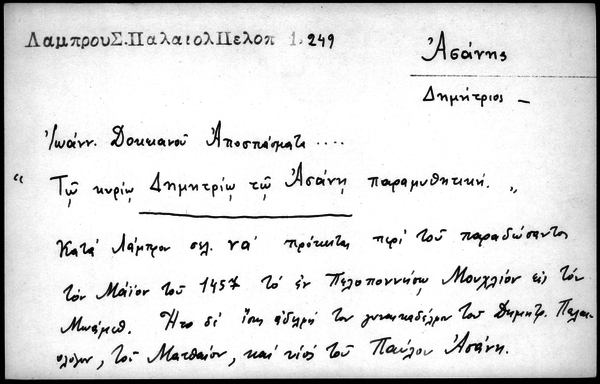 ΛαμπρουΣ.ΠαλαιολΠελοπ 1.249
Ἀσάνης
Δημήτριος —
Ἰωάνν. Δοκειανοῦ Ἀποσπάσματα ....
" Τῷ κυρίῳ Δημητρίῳ τῷ Ἀσάνῃ παραμυθητική. "
Κατά Λάμπρον σελ. να' πρόκειται περί τοῦ παραδώσαντος
τόν Μάϊον τοῦ 1457 τό ἐν Πελοποννήσῳ Μουχλίον εἰς τόν
Μωάμεθ. Ἦτο δέ ἴσως τοῦ γυναικαδέλφου τοῦ Δημητρ. Παλαι-
ολόγου, τοῦ Ματθαίου, καί υἱός τοῦ Παύλου Ἀσάνη.